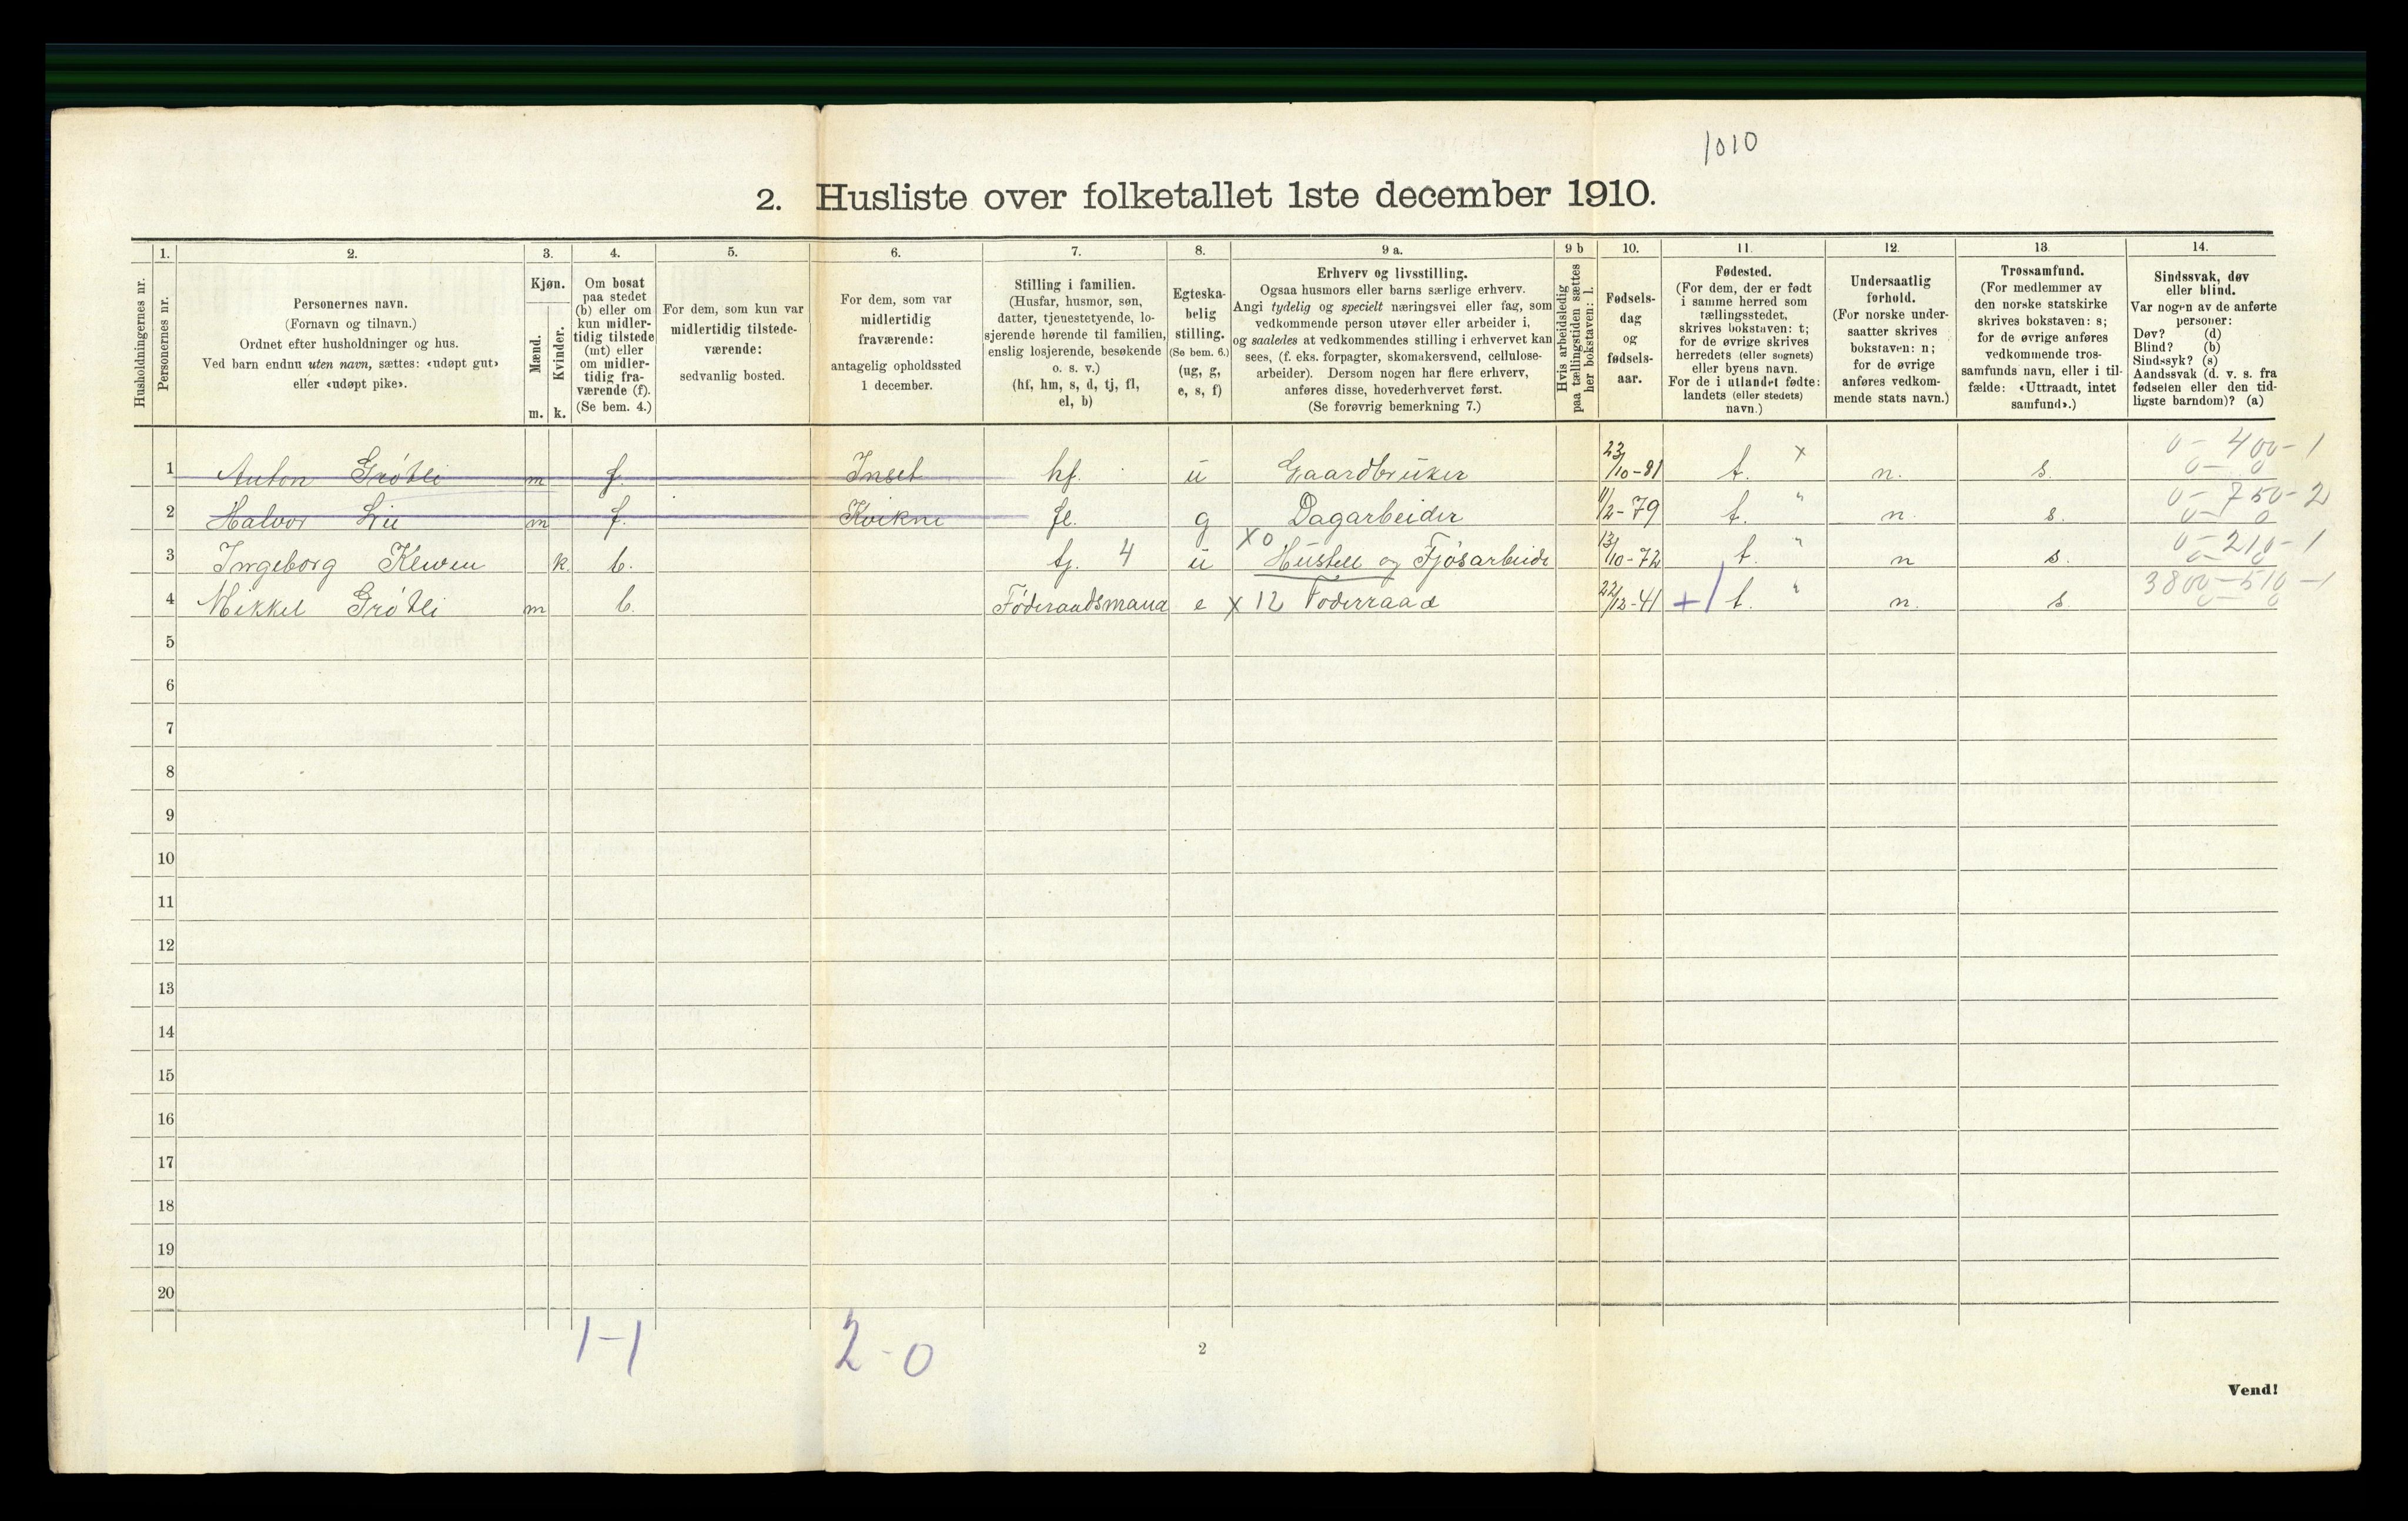 1010
2. Husliste over folketallet 1ste december 1910.
Husholdningernes nr.
1.
Personernes nr.
2.
Personernes navn.
(Fornavn og tilnavn.)
Ordnet efter husholdninger og hus.
Ved barn endnu uten navn, sættes: «udøpt gut»
eller «udøpt pike».
3.
Kjøn.
Mænd.
m.
Kvinder.
k.
4.
Om bosat
paa stedet
(b) eller om
kun midler-
tidig tilstede
(mt) eller
om midler-
tidig fra-
værende (f).
(Se bem. 4.)
5.
For dem, som kun var
midlertidig tilstede-
værende:
sedvanlig bosted.
6.
For dem, som var
midlertidig
fraværende:
antagelig opholdssted
1 december.
7.
Stilling i familien.
(Husfar, husmor, søn,
datter, tjenestetyende, lo-
sjerende hørende til familien,
enslig losjerende, besøkende
o. s. v.)
(hf, hm, s, d, tj, fl,
el, b)
8.
Egteska-
belig
stilling.
(Se bem. 6.)
(ug, g,
e, s, f)
9 a.
Erhverv og livsstilling.
Ogsaa husmors eller barns særlige erhverv.
Angi tydelig og specielt næringsvei eller fag, som
vedkommende person utøver eller arbeider i,
og saaledes at vedkommendes stilling i erhvervet kan
sees, (f. eks. forpagter, skomakersvend, cellulose-
arbeider). Dersom nogen har flere erhverv,
anføres disse, hovederhvervet først.
(Se forøvrig bemerkning 7.)
9 b
Hvis arbeidsledig
paa tællingstiden sættes
her bokstaven: l.
10.
Fødsels-
dag
og
fødsels-
aar.
11.
Fødested.
(For dem, der er født
i samme herred som
tællingsstedet,
skrives bokstaven: t;
for de øvrige skrives
herredets (eller sognets)
eller byens navn.
For de i utlandet fødte:
landets (eller stedets)
navn.)
12.
Undersaatlig
forhold.
(For norske under-
saatter skrives
bokstaven: n;
for de øvrige
anføres vedkom-
mende stats navn.)
13.
Trossamfund.
(For medlemmer av
den norske statskirke
skrives bokstaven: s;
for de øvrige anføres
vedkommende tros-
samfunds navn, eller i til-
fælde: «Uttraadt, intet
samfund».)
14.
Sindssvak, døv
eller blind.
Var nogen av de anførte
personer:
Døv? (d)
Blind? (b)
Sindssyk? (s)
Aandssvak (d. v. s. fra
fødselen eller den tid-
ligste barndom)? (a)
1 Anton Grötli m f. Inset hf. ü Gaardbrüker 23/10-81 t. x n. s. 0-400-1 0-0
2 Halvor m f. Kvikne fl. g Dagarbeider 11/2-79 t. " n. s. 0-750-2 0-0
3 Ingeborg k. b. tj. 4 ü x0 Hüstell og Fjösarbeide 13/10-72 t. " n s. 0-210-1 0-0
4 Mikkel Grötli m b. Föderaadsmand e x 12 Foderraad 22/12-41 +1 t. " n. s. 3800-510-1 0-0
5
6
7
8
9
10
11
12
13
14
15
16
17
18
19
20
1-1 2-0
2
Vend!